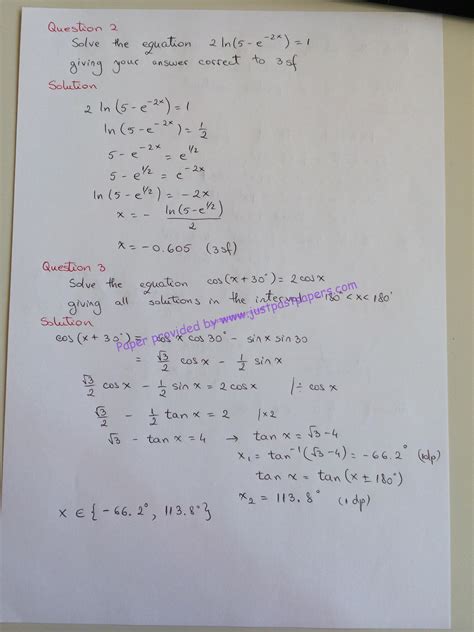 Question 2
Solve the equation 2 ln(5 - e^-2x) = 1
giving your answer correct to 3sf
Solution
2 ln(5 - e^-2x) = 1
ln(5 - e^-2x) = 1/2
5 - e^-2x = e^1/2
5 - e^1/2 = e^-2x
ln(5 - e^1/2) = -2x
x = - ln(5 - e^1/2)/2
x = -0.605 (3sf)
Question 3
Solve the equation cos(x + 30°) = 2cosx
giving all solutions in the interval 180° < x < 180°
Solution
cos(x + 30°) = cosx cos30° - sinx sin30
= √3/2 cosx - 1/2 sinx
√3/2 cosx - 1/2 sinx = 2cosx |÷ cosx
√3/2 - 1/2 tanx = 2 |×2
√3 - tanx = 4 → tanx = √3-4
x₁ = tan⁻¹(√3-4) = -66.2° (1dp)
tanx = tan(x ± 180°)
x₂ = 113.8° (1dp)
x ∈ {-66.2°, 113.8°}
Paper provided by www.justpastpapers.com